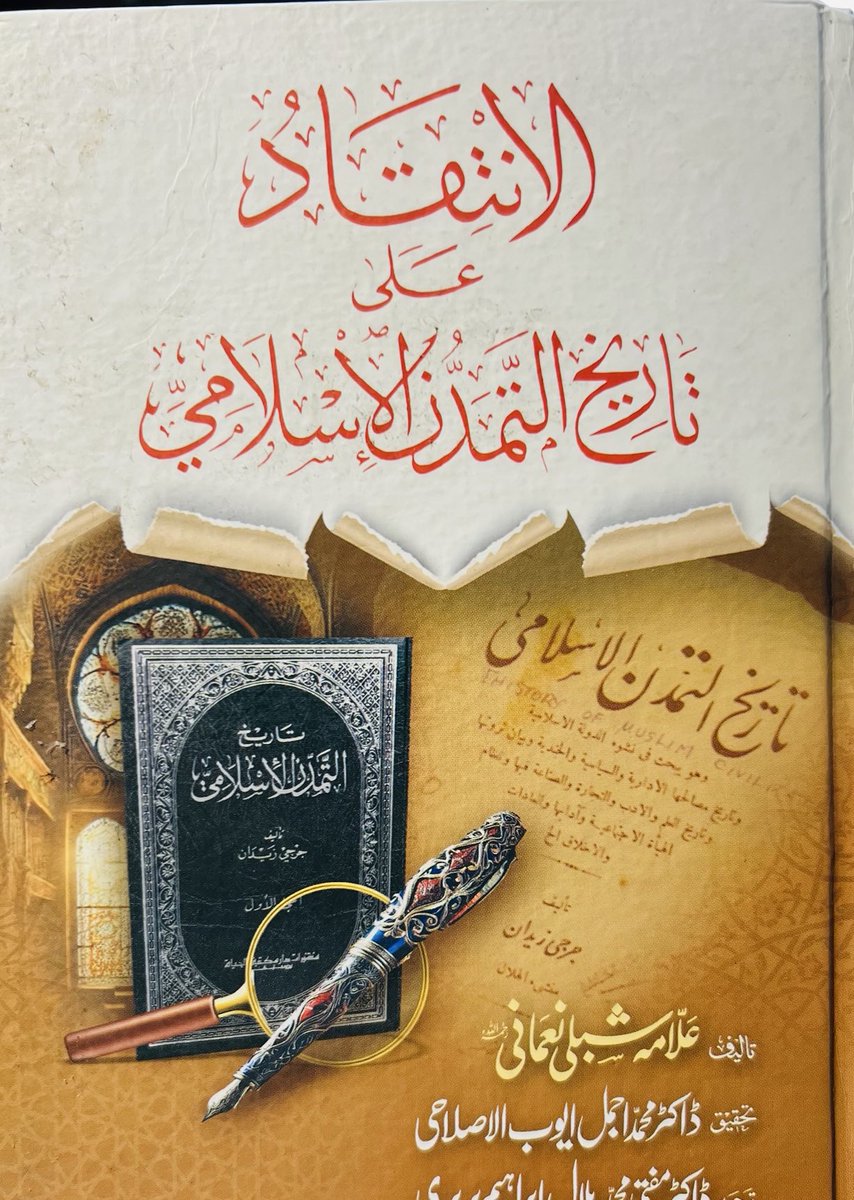 الِانْتِقَادُ
عَلَى
تَارِيخِ التَّمَدُّنِ الْإِسْلَامِيِّ
تاريخ التمدن الإسلامي
HISTORY OF MUSLIM
وهو يبحث في نشوء الدولة الاسلامية
وتاريخ مصالحها الادارية والسياسية والجندية وبيان ثروتها
وتاريخ العلم والادب والتجارة والصناعة فيها ونظام
الهيأة الاجتماعية وآدابها والعادات
والاخلاق الخ
تأليف
جرجي زيدان
منشىء الهلال
تاريخ
التمدن الإسلامي
تأليف
جرجي زيدان
الجزء الأول
تالیف علّامہ شبلی نعمانی
تحقیق ڈاکٹر محمد اجمل ایوب الاصلاحی
ڈاکٹر مفتی محمد بلال ابراہیم بربری